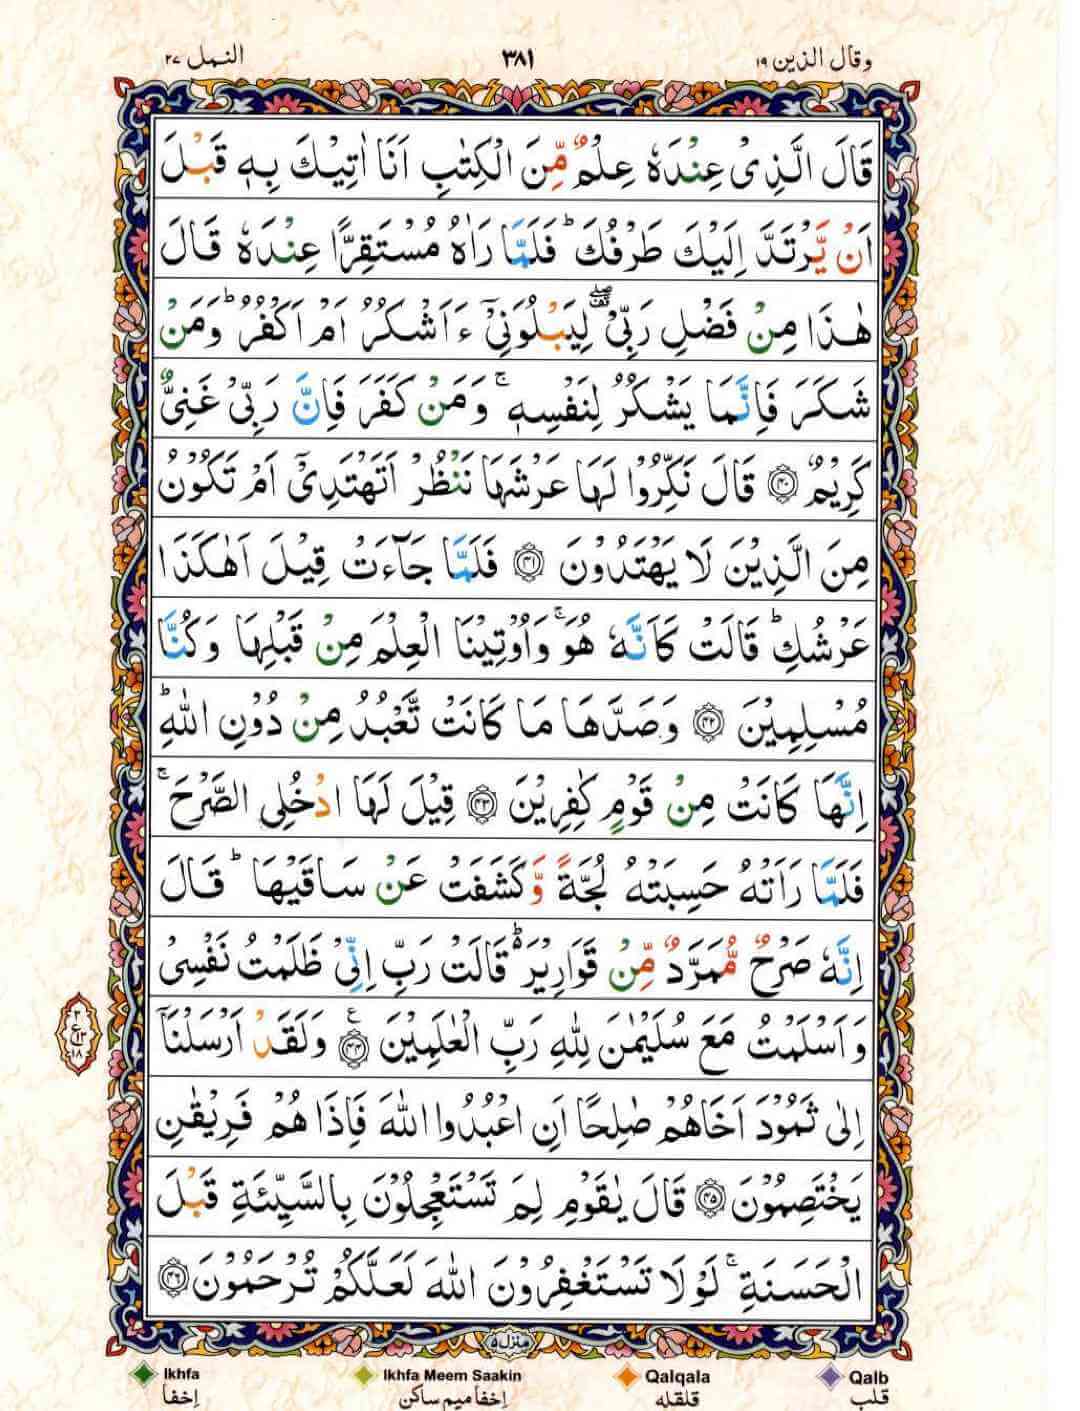 وقال الذين ١٩ ٣٨١ النمل ٢٧
قَالَ الَّذِیْ عِنْدَهٗ عِلْمٌ مِّنَ الْكِتٰبِ اَنَا اٰتِیْكَ بِهٖ قَبْلَ
اَنْ یَّرْتَدَّ اِلَیْكَ طَرْفُكَ ؕ فَلَمَّا رَاٰهُ مُسْتَقِرًّا عِنْدَهٗ قَالَ
هٰذَا مِنْ فَضْلِ رَبِّیْ ۖ۫ لِیَبْلُوَنِیْۤ ءَاَشْكُرُ اَمْ اَكْفُرُ ؕ وَمَنْ
شَكَرَ فَاِنَّمَا یَشْكُرُ لِنَفْسِهٖ ۚ وَمَنْ كَفَرَ فَاِنَّ رَبِّیْ غَنِیٌّ
كَرِیْمٌ ﴿۴۰﴾ قَالَ نَكِّرُوْا لَهَا عَرْشَهَا نَنْظُرْ اَتَهْتَدِیْۤ اَمْ تَكُوْنُ
مِنَ الَّذِیْنَ لَا یَهْتَدُوْنَ ﴿۴۱﴾ فَلَمَّا جَآءَتْ قِیْلَ اَهٰكَذَا
عَرْشُكِ ؕ قَالَتْ كَاَنَّهٗ هُوَ ۚ وَاُوْتِیْنَا الْعِلْمَ مِنْ قَبْلِهَا وَكُنَّا
مُسْلِمِیْنَ ﴿۴۲﴾ وَصَدَّهَا مَا كَانَتْ تَّعْبُدُ مِنْ دُوْنِ اللّٰهِ ؕ
اِنَّهَا كَانَتْ مِنْ قَوْمٍ كٰفِرِیْنَ ﴿۴۳﴾ قِیْلَ لَهَا ادْخُلِی الصَّرْحَ ۚ
فَلَمَّا رَاَتْهُ حَسِبَتْهُ لُجَّةً وَّكَشَفَتْ عَنْ سَاقَیْهَا ؕ قَالَ
اِنَّهٗ صَرْحٌ مُّمَرَّدٌ مِّنْ قَوَارِیْرَ ؕ۬ قَالَتْ رَبِّ اِنِّیْ ظَلَمْتُ نَفْسِیْ
وَاَسْلَمْتُ مَعَ سُلَیْمٰنَ لِلّٰهِ رَبِّ الْعٰلَمِیْنَ ﴿۴۴﴾ ع وَلَقَدْ اَرْسَلْنَاۤ
اِلٰی ثَمُوْدَ اَخَاهُمْ صٰلِحًا اَنِ اعْبُدُوا اللّٰهَ فَاِذَا هُمْ فَرِیْقٰنِ
یَخْتَصِمُوْنَ ﴿۴۵﴾ قَالَ یٰقَوْمِ لِمَ تَسْتَعْجِلُوْنَ بِالسَّیِّئَةِ قَبْلَ
الْحَسَنَةِ ۚ لَوْلَا تَسْتَغْفِرُوْنَ اللّٰهَ لَعَلَّكُمْ تُرْحَمُوْنَ ﴿۴۶﴾
منزل ٥
Ikhfa Ikhfa Meem Saakin Qalqala Qalb
اِخفا اِخفا میم ساکن قلقله قلب